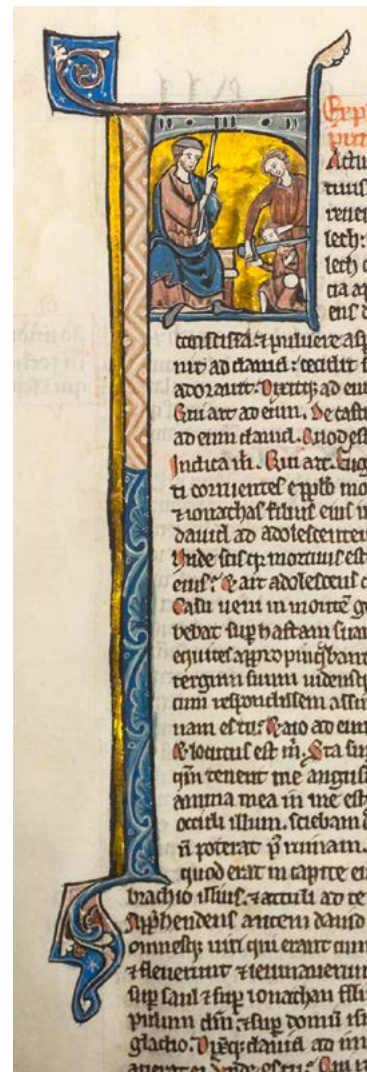 Expl
pri
Actu
tuus
reuer
lech:
lech
tia ap
ens d
conscissa. ⁊ puluere asp
nit ad dauid: cecidit s
adorauit. Dixitq; ad eu
Qui ait ad eum. De castr
ad eum dauid. Quod est
Indica m̅. Qui ait. Fug
ti corruentes e ppl̅o mo
⁊ ionathas filius eius i
dauid ad adolescente
Unde scis q̅ mortuus est
eius: Et ait adolescens
Casu ueni in monte̅ ge
bebat sup̅ hastam suam
equites appropinq̅bant
tergum suum uidensq
cum respondissem assu
nam es tu: Et aio ad eum
Et locutus est m̅. Sta sup
q̅m tenent me angust
anima mea in me est
occidi illum. sciebam
n̅ poterat p̅ ruinam.
quod erat in capite ei
brachio illius. ⁊ attuli ad te
Appr̅hendens autem dauid
omnesq; uiri qui erant cum
⁊ fleuerunt ⁊ ieiunauerun
sup̅ saul ⁊ sup̅ ionathan fili
populum dn̅i ⁊ sup̅ domu̅ isr
gladio. Dix̅q; dauid ad iu
Unde es tu: Qui